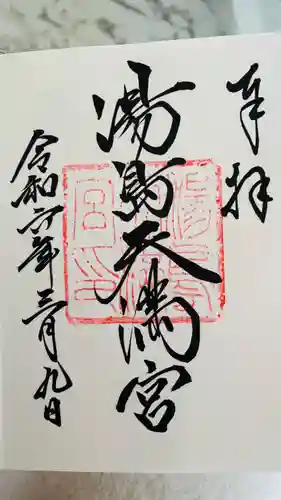 奉拝
湯島天満宮
令和六年三月九日